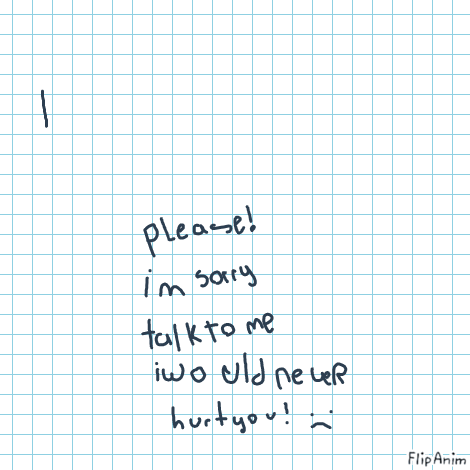 |
please!
im sorry
talk to me
iwo uld neveR
hurtyou! :(
FlipAnim